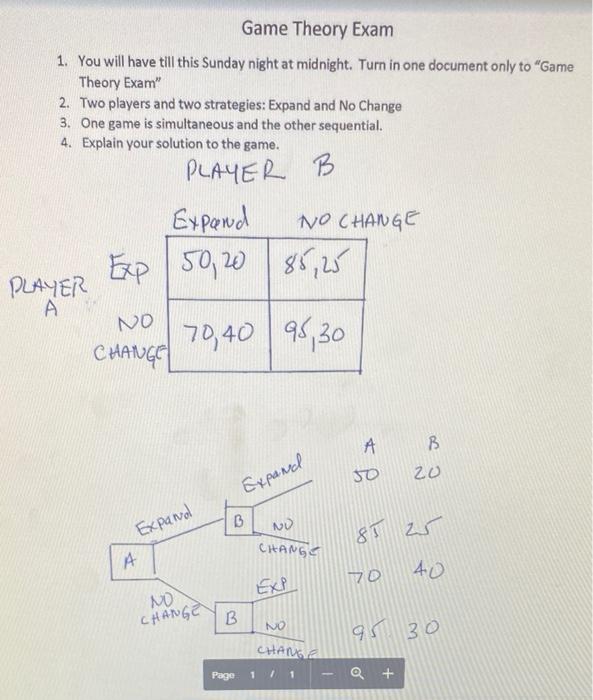 Game Theory Exam
1. You will have till this Sunday night at midnight. Turn in one document only to “Game
Theory Exam”
2. Two players and two strategies: Expand and No Change
3. One game is simultaneous and the other sequential.
4. Explain your solution to the game.
PLAYER B
Expand NO CHANGE
PLAYER A
EXP 50, 20 85, 25
NO CHANGE 70, 40 95, 30
A B
Expand 50 20
Expand B NO CHANGE 85 25
A
EXP 70 40
NO CHANGE B NO CHANGE 95 30
Page 1 / 1 − +